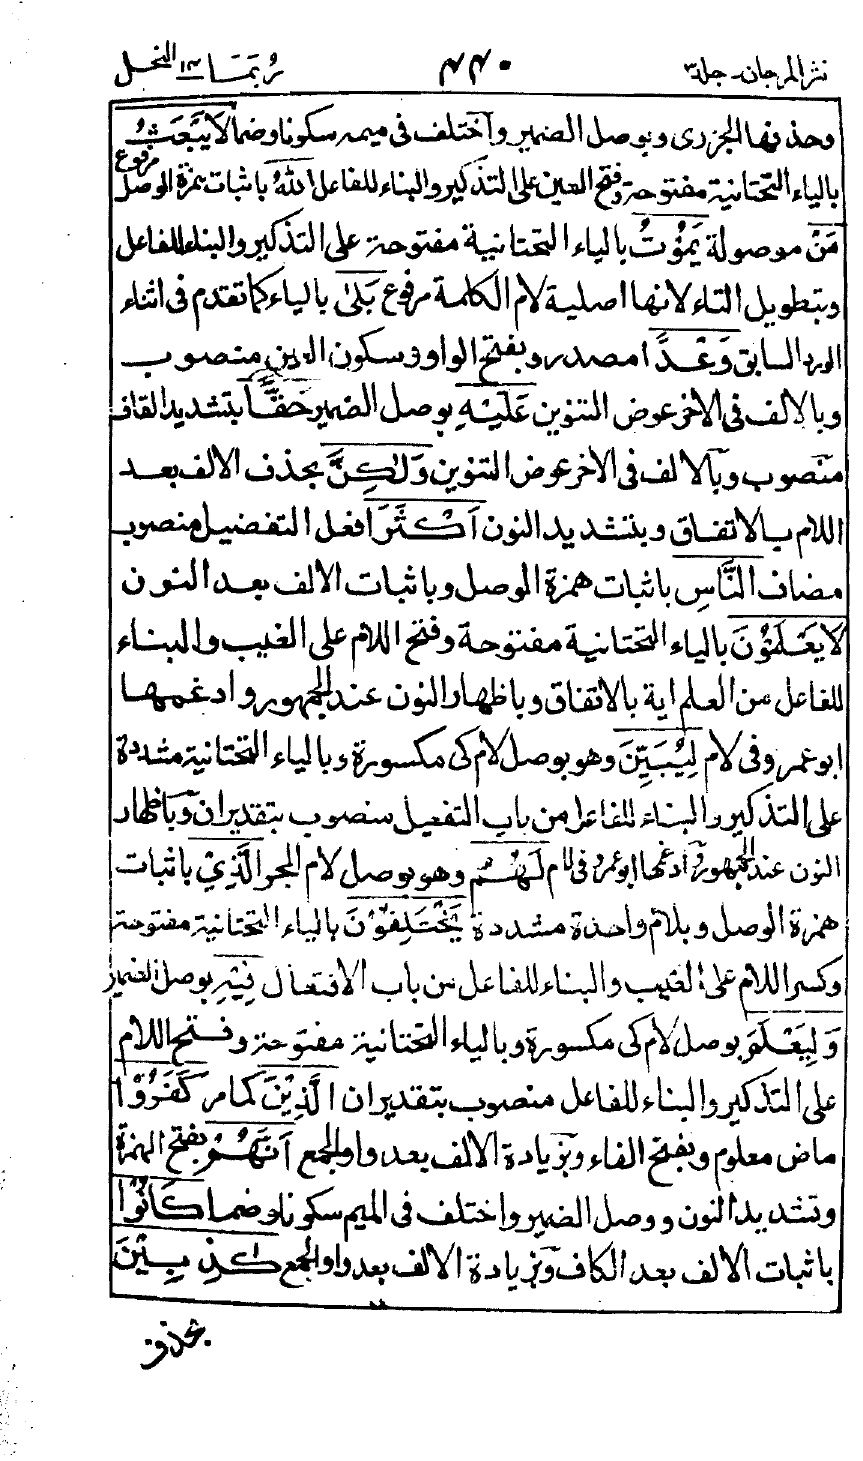 نثر المرجان۔ جلد ۳ ۴۴۰ ربما ۱۴ النحل
وحذفها الجزري وبوصل الضمير واختلف في ميمه سكونا وضما لَا يَبْعَثُ
بالياء التحتانية مفتوحة وفتح العين على التذكير والبناء للفاعل اللهُ باثبات همزة الوصل مرفوع
مَنْ موصولة يَمُوْتُ بالياء التحتانية مفتوحة على التذكير والبناء للفاعل
وبتطويل التاء لانها اصلية لام الكلمة مرفوع بَلىٰ بالياء كما تقدم في اثناء
الورد السابق وَعْدًا مصدر وبفتح الواو وسكون العين منصوب
وبالالف في الاخر عوض التنوين عَلَيْهِ بوصل الضمير حَقًّا بتشديد القاف
منصوب وبالالف في الاخر عوض التنوين وَلٰكِنَّ بحذف الالف بعد
اللام بالاتفاق وبتشديد النون اَكْثَرَ افعل التفضيل منصوب
مضاف النَّاسِ باثبات همزة الوصل وباثبات الالف بعد النون
لَا يَعْلَمُوْنَ بالياء التحتانية مفتوحة وفتح اللام على الغيب والبناء
للفاعل من العلم اية بالاتفاق وباظهار النون عند الجمهور وادغمها
ابو عمرو في لام لِيُبَيِّنَ وهو بوصل لام كي مكسورة وبالياء التحتانية مشددة
على التذكير والبناء للفاعل من باب التفعيل منصوب بتقدير ان وباظهار
النون عند الجمهور وادغمها ابو عمرو في لام لَهُمْ وهو بوصل لام الجر الَّذِيْ باثبات
همزة الوصل وبلام واحدة مشددة يَخْتَلِفُوْنَ بالياء التحتانية مفتوحة
وكسر اللام على الغيب والبناء للفاعل من باب الافتعال فِيْهِ بوصل الضمير
وَلِيَعْلَمَ بوصل لام كي مكسورة وبالياء التحتانية مفتوحة وفتح اللام
على التذكير والبناء للفاعل منصوب بتقدير ان الَّذِيْنَ كما مر كَفَرُوْا
ماض معلوم وبفتح الفاء وبزيادة الالف بعد واو الجمع اَنَّهُمْ بفتح الهمزة
وتشديد النون ووصل الضمير واختلف في الميم سكونا وضما كَانُوْا
باثبات الالف بعد الكاف وبزيادة الالف بعد واو الجمع كٰذِبِيْنَ
بحذف